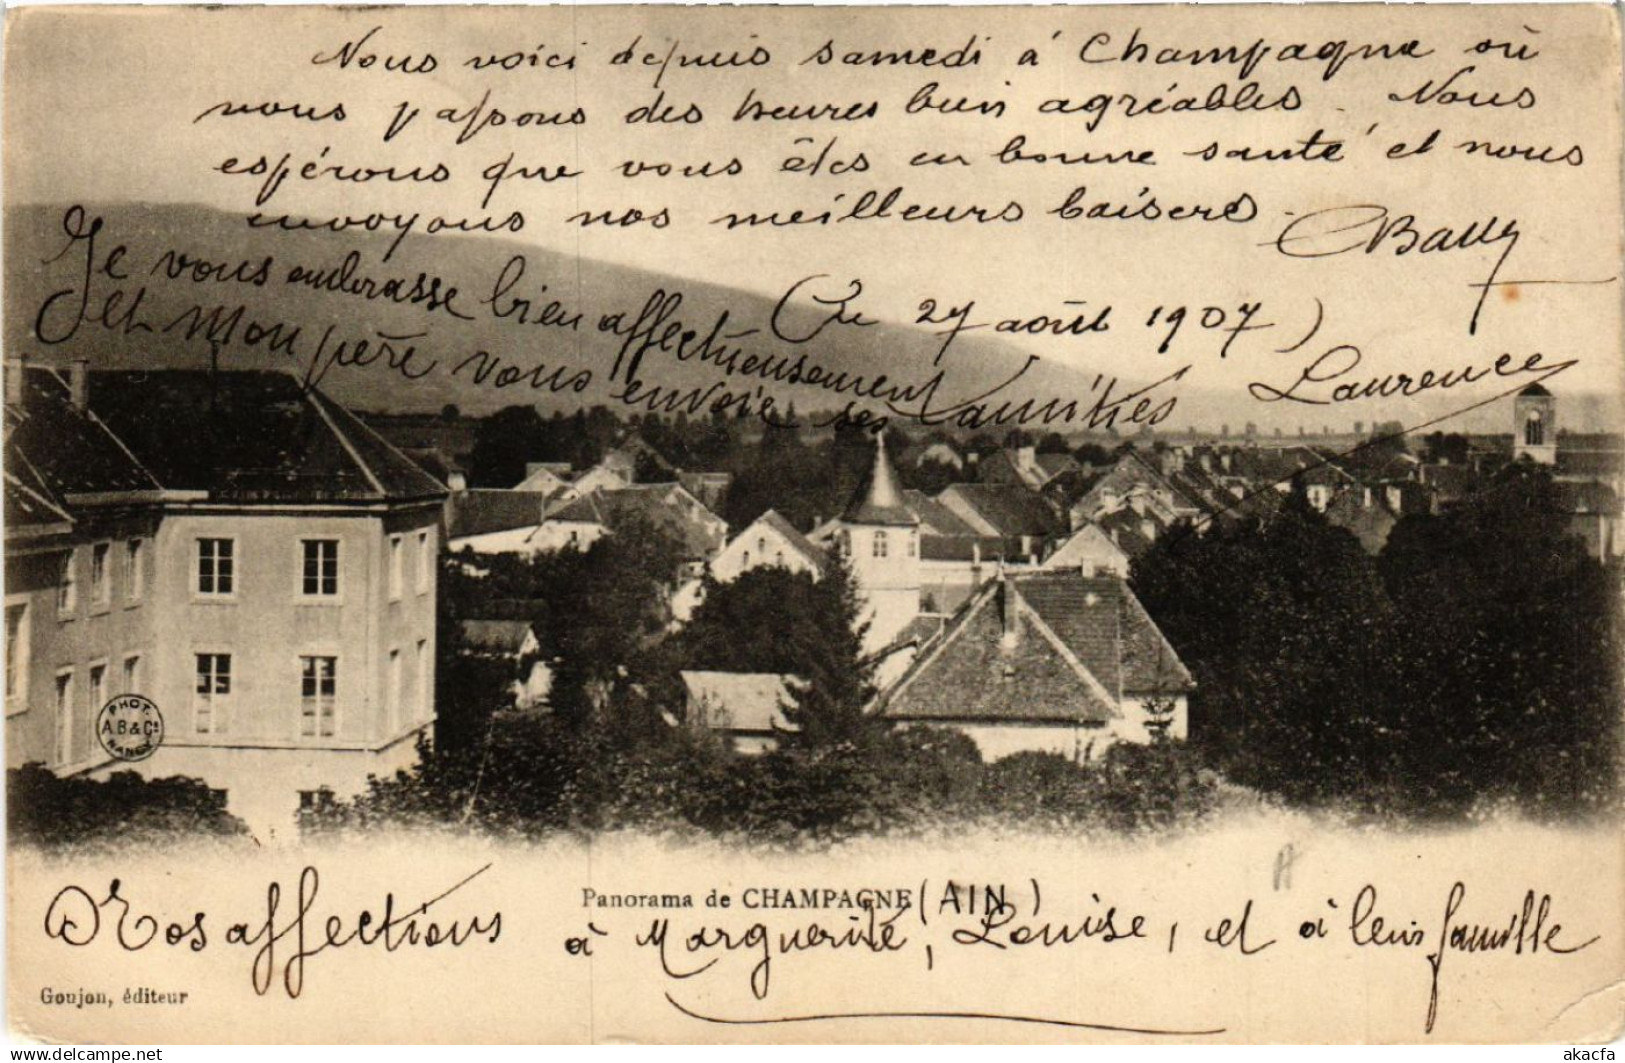 Nous voici depuis samedi à Champagne où
nous passons des heures bien agréables. Nous
espérons que vous êtes en bonne santé et nous
envoyons nos meilleurs baisers.
Je vous embrasse bien affectueusement
(Le 27 août 1907)
Et mon père vous envoie ses amitiés
Laurence
PHOT.
A.B & Cie
NANCY
Panorama de CHAMPAGNE (AIN)
Nos affections à Marguerite, Louise, et à leur famille
Goujon, éditeur
akacfa
www.delcampe.net